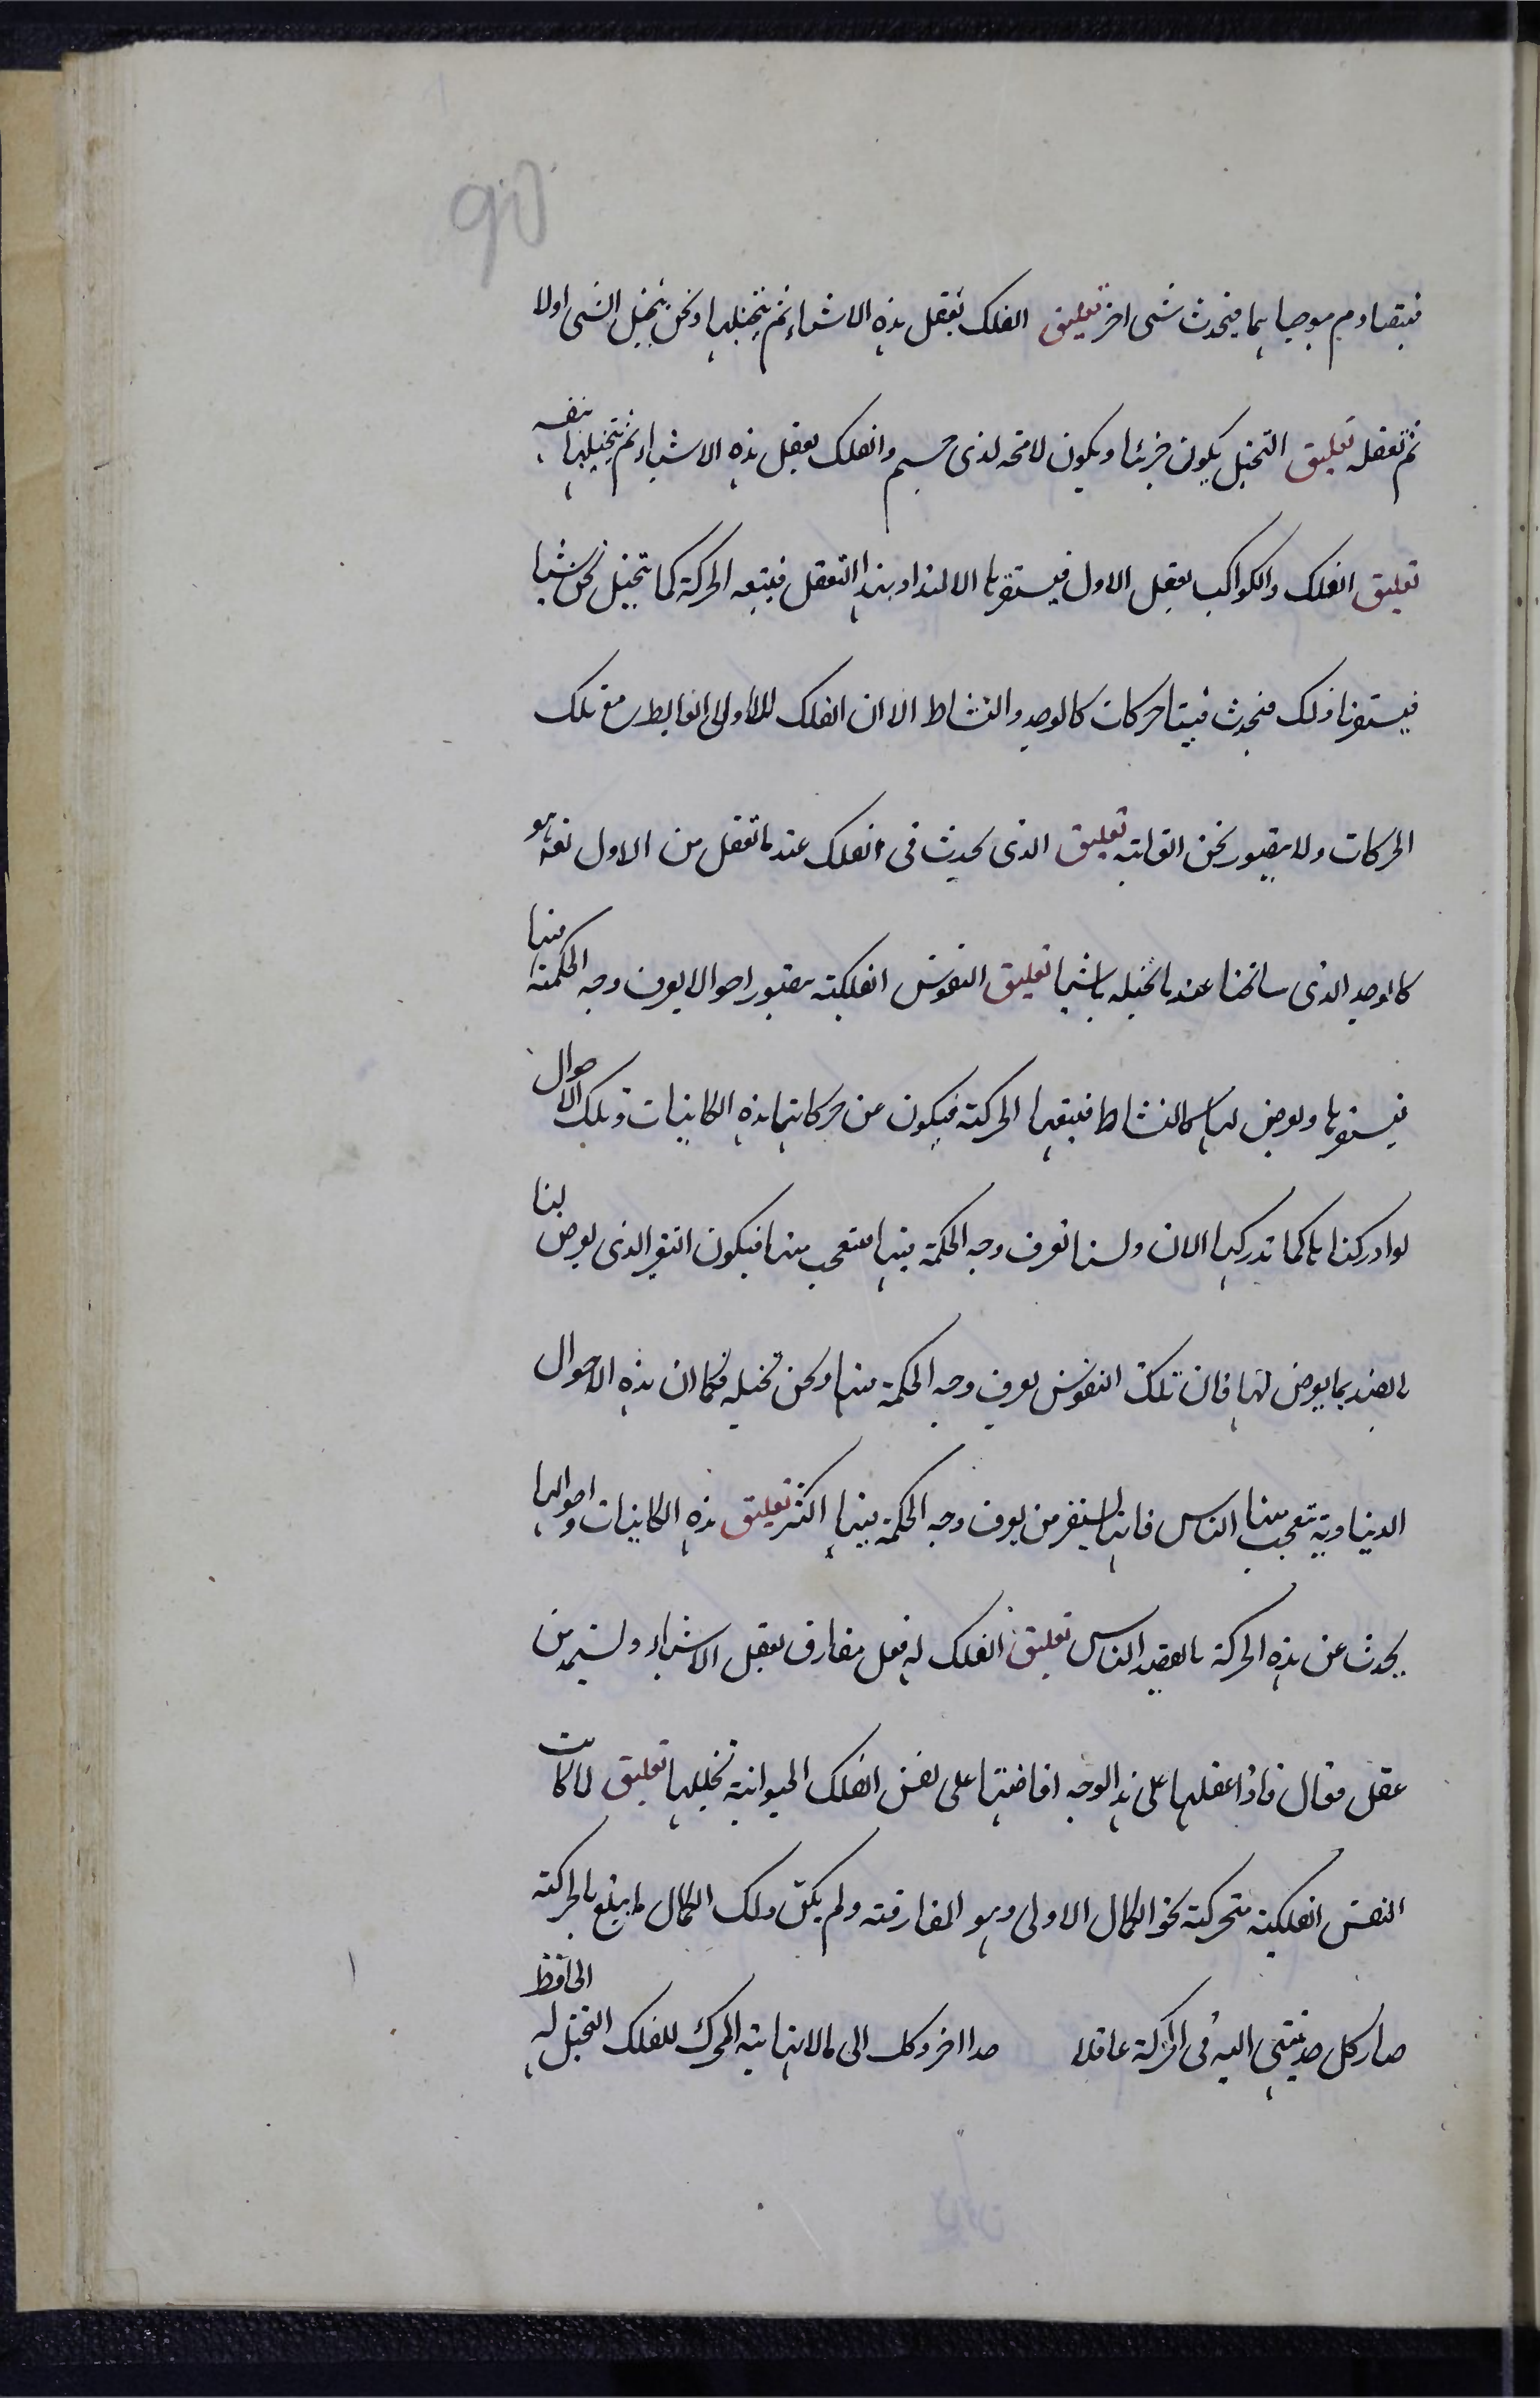 فيتصادم موجباهما فيحدث شی اخر تعليق الفلك يتعقل هذه الاشياء ثم يتخيلها ونحن نتخيل الشی اولا
ثم نعقله تعليق التخيل يكون جزئيا ويكون لا محه لذی جسم والفلك يعقل هذه الاشياء ثم يتخيلها بنفسه
تعليق الفلك والكواكب يعقل الاول فيستفزها الالتذاذ بهذا التعقل فيتبعه الحركة كما نتخيل نحن شيا
فيستفزنا ذلك فيحدث فينا حركات كالوجد والنشاط الا ان الفلك تلك
الحركات ولا يتصور نحن الغاية تعليق الذی يحدث فی الفلك عند ما تعقل من الاول نفسه هو
كالوجد الذی سانحنا عند ما نخيله باشيا تعليق النفوس الفلكية يتصور احوالا يعرف وجه الحكمة منها
فيستفزها ويعرض لها كالنشاط فيتبعها الحركة فيكون عن حركاتها هذه الكاينات وتلك الاحوال
لو ادركناها كما ندركها الان ولسنا نعرف وجه الحكمة فيها نتعجب منها فيكون التغير الذی يعرض لنا
بالضد بما يعرض لها فان تلك النفوس يعرف وجه الحكمة منها ونحن نخيله فكما ان هذه الاحوال
الدنياوية يتعجب منها الناس فانها يستفز من يعرف وجه الحكمة فيها اكثر تعليق هذه الكاينات واحوالها
يحدث عن هذه الحركة بالقصد الناس تعليق الفلك له فعل مفارق يعقل الاشياء ويستمد من
عقل فعال فاذا عقلها علی هذا الوجه افاضتها علی نفس الفلك الحيوانية تخيلها تعليق لما كانت
النفس الفلكية متحركة نحو الكمال الاولی وهو المفارقة ولم يكن ذلك الكمال ما يبلغ بالحركة
صار كل حد ينتهی اليه فی الحركة عاقلا حدا اخر وكل الی ما لا نهاية المحرك للفلك التخيل له الحافظ